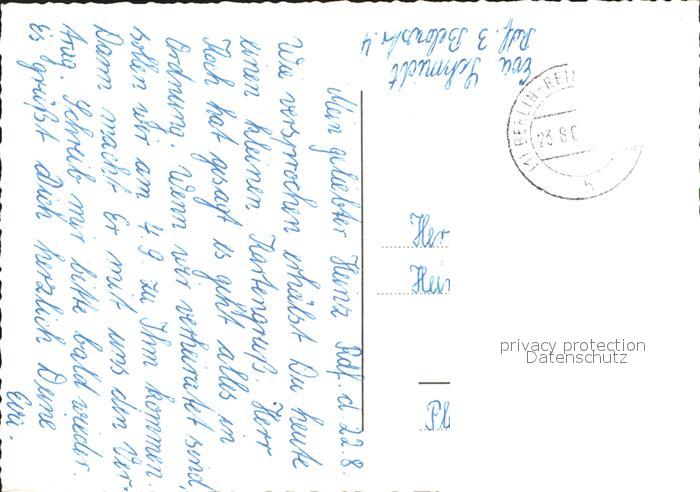 Eva Schmidt
Rdf. 3 Belowstr. 4
Mein geliebter Heinz Rdf. d. 22.8.
Wie versprochen erhälst Du heute
einen kleinen Kartengruß. Herr
Koch hat gesagt es geht alles in
Ordnung. Wenn wir verheiratet sind,
sollen wir am 4.9. zu Ihm kommen.
Dann macht Er mit uns den Ver-
trag. Schreib mir bitte bald wieder.
Es grüßt Dich herzlich Deine
Eva.
(1) BERLIN-REI
23.8.6
h
Her
Hein
privacy protection
Datenschutz